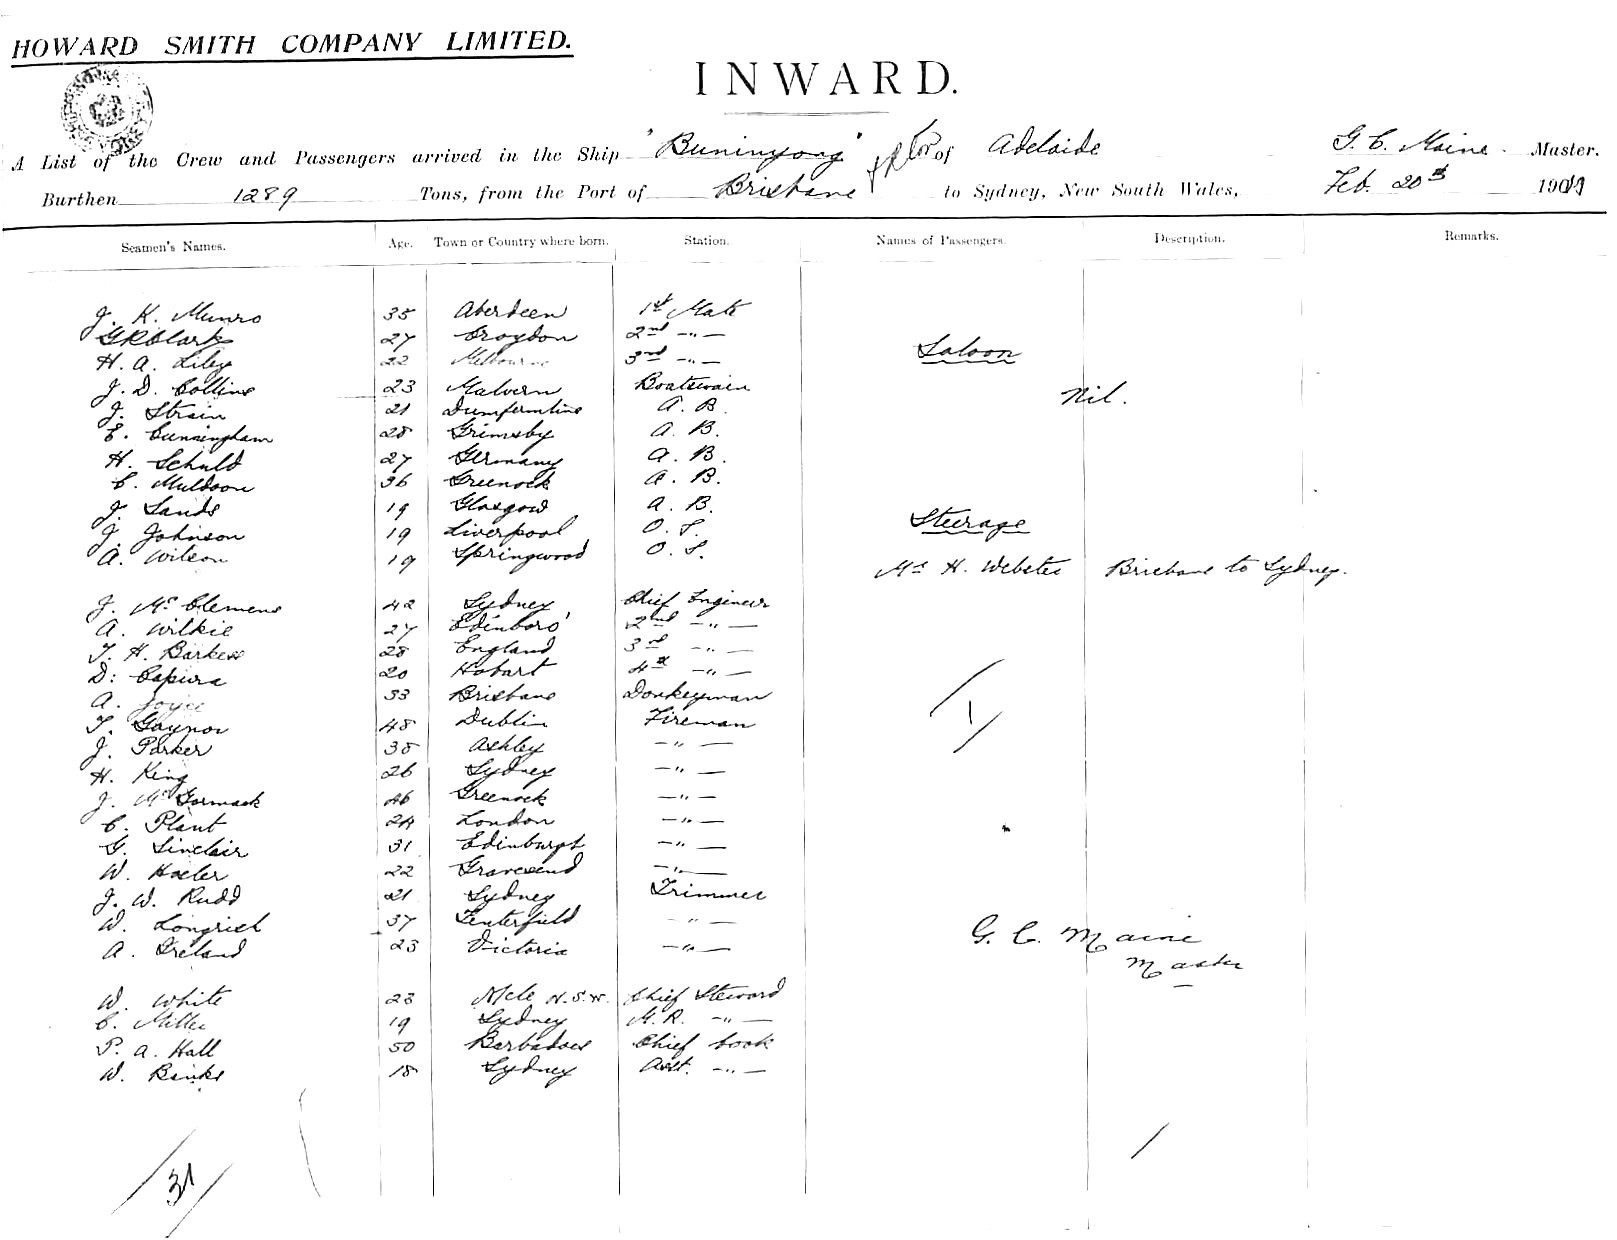 HOWARD SMITH COMPANY LIMITED.
INWARD.
A List of the Crew and Passengers arrived in the Ship "Buninyong" of Adelaide G. C. Maine Master.
Burthen 1289 Tons, from the Port of Brisbane to Sydney, New South Wales, Feb. 20th 190
Seamen's Names. Age. Town or Country where born. Station. Names of Passengers. Description. Remarks.
J. K. Munro 35 Aberdeen 1st Mate
G R Clark 27 Croydon 2nd -"-
Saloon
H. A. Liley 22 Melbourne 3rd -"-
J. D. Collins 23 Malvern Boatswain Nil.
J. Strain 21 Dumfermline A. B.
E. Cunningham 28 Grimsby A. B.
H. Schuld 27 Germany A. B.
C. Muldoon 36 Greenock A. B.
J. Sands 19 Glasgow A. B.
Steerage
J. Johnson 19 Liverpool O. S.
A. Wilson 19 Springwood O. S.
Mr H. Webster Brisbane to Sydney.
J. Mc Clemens 42 Sydney Chief Engineer
A. Wilkie 27 Edinboro' 2nd -"-
T. H. Barkess 28 England 3rd -"-
D. 20 Hobart 4th -"-
A. Joyce 33 Brisbane Donkeyman
T. Gaynor 48 Dublin Fireman
1
J. Parker 38 Ashley -"-
H. King 26 Sydney -"-
J. McCormack 46 Greenock -"-
C. Plant 24 London -"-
G. Sinclair 31 Edinburgh -"-
W. 22 Gravesend -"-
J. W. Rudd 21 Sydney Trimmer
W. 37 Tenterfield -"-
G. C. Maine
A. Ireland 23 Victoria -"-
Master
W. White 28 N.S.W. Chief Steward
C. Miller 19 Sydney M.R. -"-
P. A. Hall 50 Barbadoes Chief Cook
W. Banks 18 Sydney Asst. -"-
31